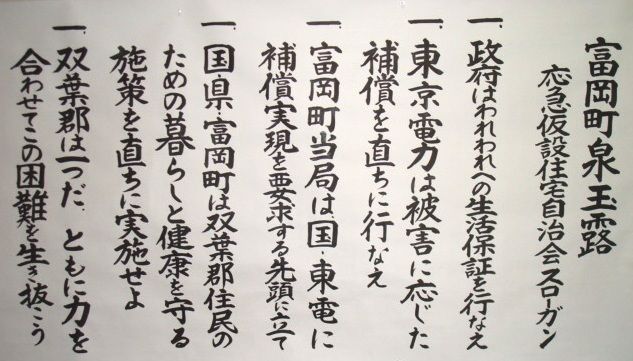 富岡町泉玉露
応急仮設住宅自治会スローガン
一、政府はわれわれへの生活保証を行なえ
一、東京電力は被害に応じた
補償を直ちに行なえ
一、富岡町当局は、国・東電に
補償実現を要求する先頭に立て
一、国・県・富岡町は双葉郡住民の
ための暮らしと健康を守る
施策を直ちに実施せよ
一、双葉郡は一つだ、ともに力を
合わせてこの困難を生き抜こう